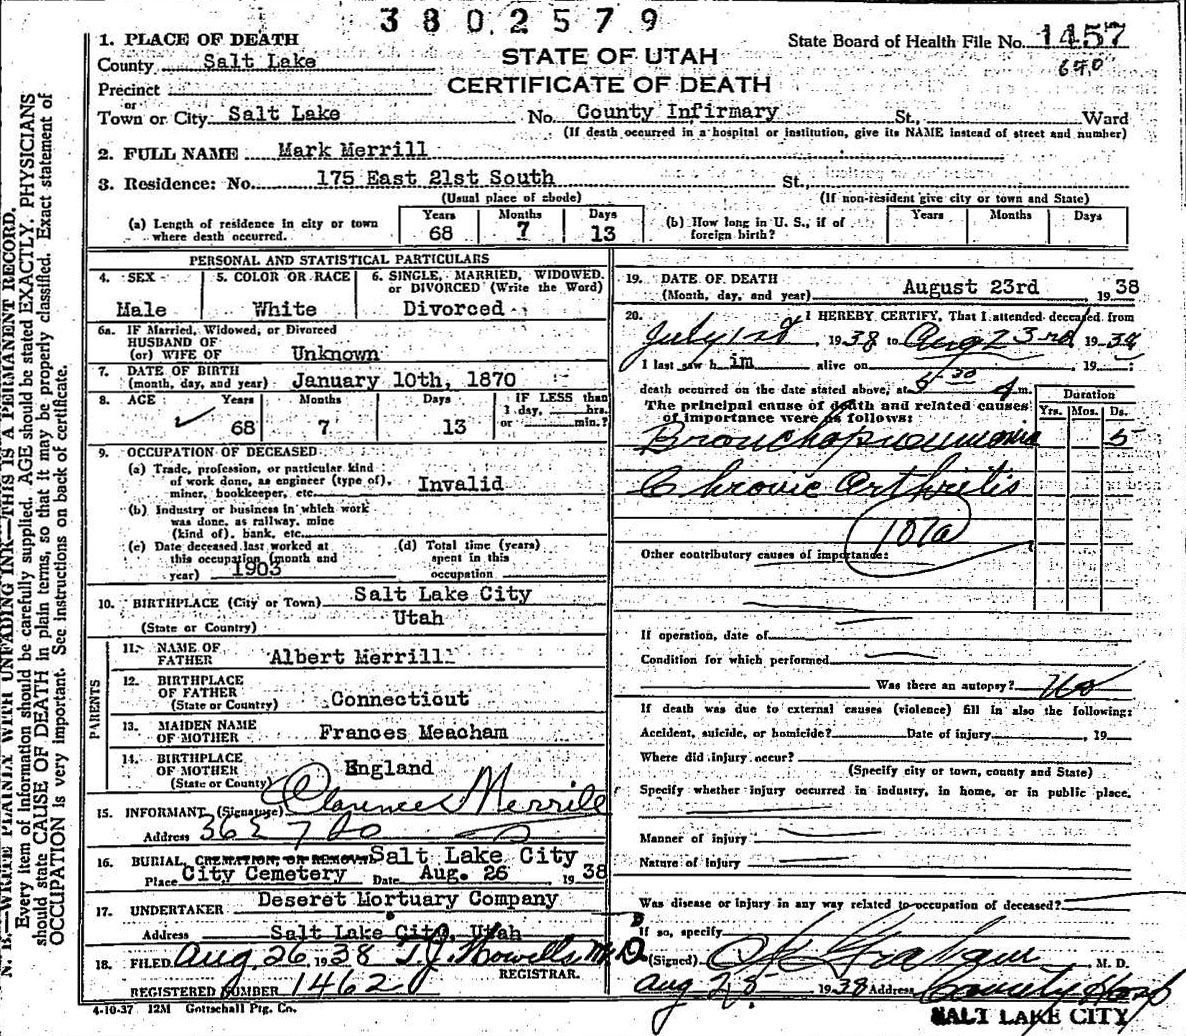 3802579
1. PLACE OF DEATH
State Board of Health File No. 1457
STATE OF UTAH
County Salt Lake
690
CERTIFICATE OF DEATH
Precinct
or
Town or City Salt Lake No. County Infirmary St., Ward
(If death occurred in a hospital or institution, give its NAME instead of street and number)
2. FULL NAME Mark Merrill
3. Residence: No. 175 East 21st South St.,
(Usual place of abode) (If non-resident give city or town and State)
(a) Length of residence in city or town where death occurred. Years 68 Months 7 Days 13 (b) How long in U. S., if of foreign birth? Years Months Days
PERSONAL AND STATISTICAL PARTICULARS
4. SEX 5. COLOR OR RACE 6. SINGLE, MARRIED, WIDOWED, or DIVORCED (Write the Word)
Male White Divorced
6a. IF Married, Widowed, or Divorced
HUSBAND OF
(or) WIFE OF Unknown
7. DATE OF BIRTH
(month, day, and year) January 10th, 1870
8. AGE Years Months Days IF LESS than
1 day, hrs.
or min.?
68 7 13
9. OCCUPATION OF DECEASED
(a) Trade, profession, or particular kind
of work done, as engineer (type of),
miner, bookkeeper, etc. Invalid
(b) Industry or business in which work
was done, as railway, mine
(kind of), bank, etc.
(c) Date deceased last worked at
this occupation (month and
year) 1903
(d) Total time (years)
spent in this
occupation
10. BIRTHPLACE (City or Town) Salt Lake City
(State or Country) Utah
PARENTS
11. NAME OF
FATHER Albert Merrill
12. BIRTHPLACE
OF FATHER
(State or Country) Connecticut
13. MAIDEN NAME
OF MOTHER Frances Meacham
14. BIRTHPLACE
OF MOTHER
(State or County) England
15. INFORMANT (Signature) Clarence Merrill
Address
16. BURIAL, CREMATION, OR REMOVAL Salt Lake City
Place City Cemetery Date Aug. 26 1938
17. UNDERTAKER Deseret Mortuary Company
Address Salt Lake City, Utah
18. FILED Aug. 26, 1938 T.J. Howells, M.D.
REGISTRAR.
REGISTERED NUMBER 1462
4-10-37 12M Gottschall Ptg. Co.
19. DATE OF DEATH
(Month, day, and year) August 23rd 1938
20. I HEREBY CERTIFY, That I attended deceased from
July 1st, 1938 to Aug 23rd 1938
I last saw him alive on 19
death occurred on the date stated above, at 5 30 m.
The principal cause of death and related causes
of importance were as follows:
Duration
Yrs. Mos. Ds.
Bronchopneumonia 5
Chronic Arthritis
107a
Other contributory causes of importance:
If operation, date of
Condition for which performed
Was there an autopsy? No
If death was due to external causes (violence) fill in also the following:
Accident, suicide, or homicide? Date of injury , 19
Where did injury occur?
(Specify city or town, county and State)
Specify whether injury occurred in industry, in home, or in public place.
Manner of injury
Nature of Injury
Was disease or injury in any way related to occupation of deceased?
If so, specify
(Signed) Graham M. D.
Aug 25 1938 Address County Hosp
SALT LAKE CITY
N. B.—WRITE PLAINLY WITH UNFADING INK—THIS IS A PERMANENT RECORD.
Every item of information should be carefully supplied. AGE should be stated EXACTLY. PHYSICIANS
should state CAUSE OF DEATH in plain terms, so that it may be properly classified. Exact statement of
OCCUPATION is very important. See instructions on back of certificate.